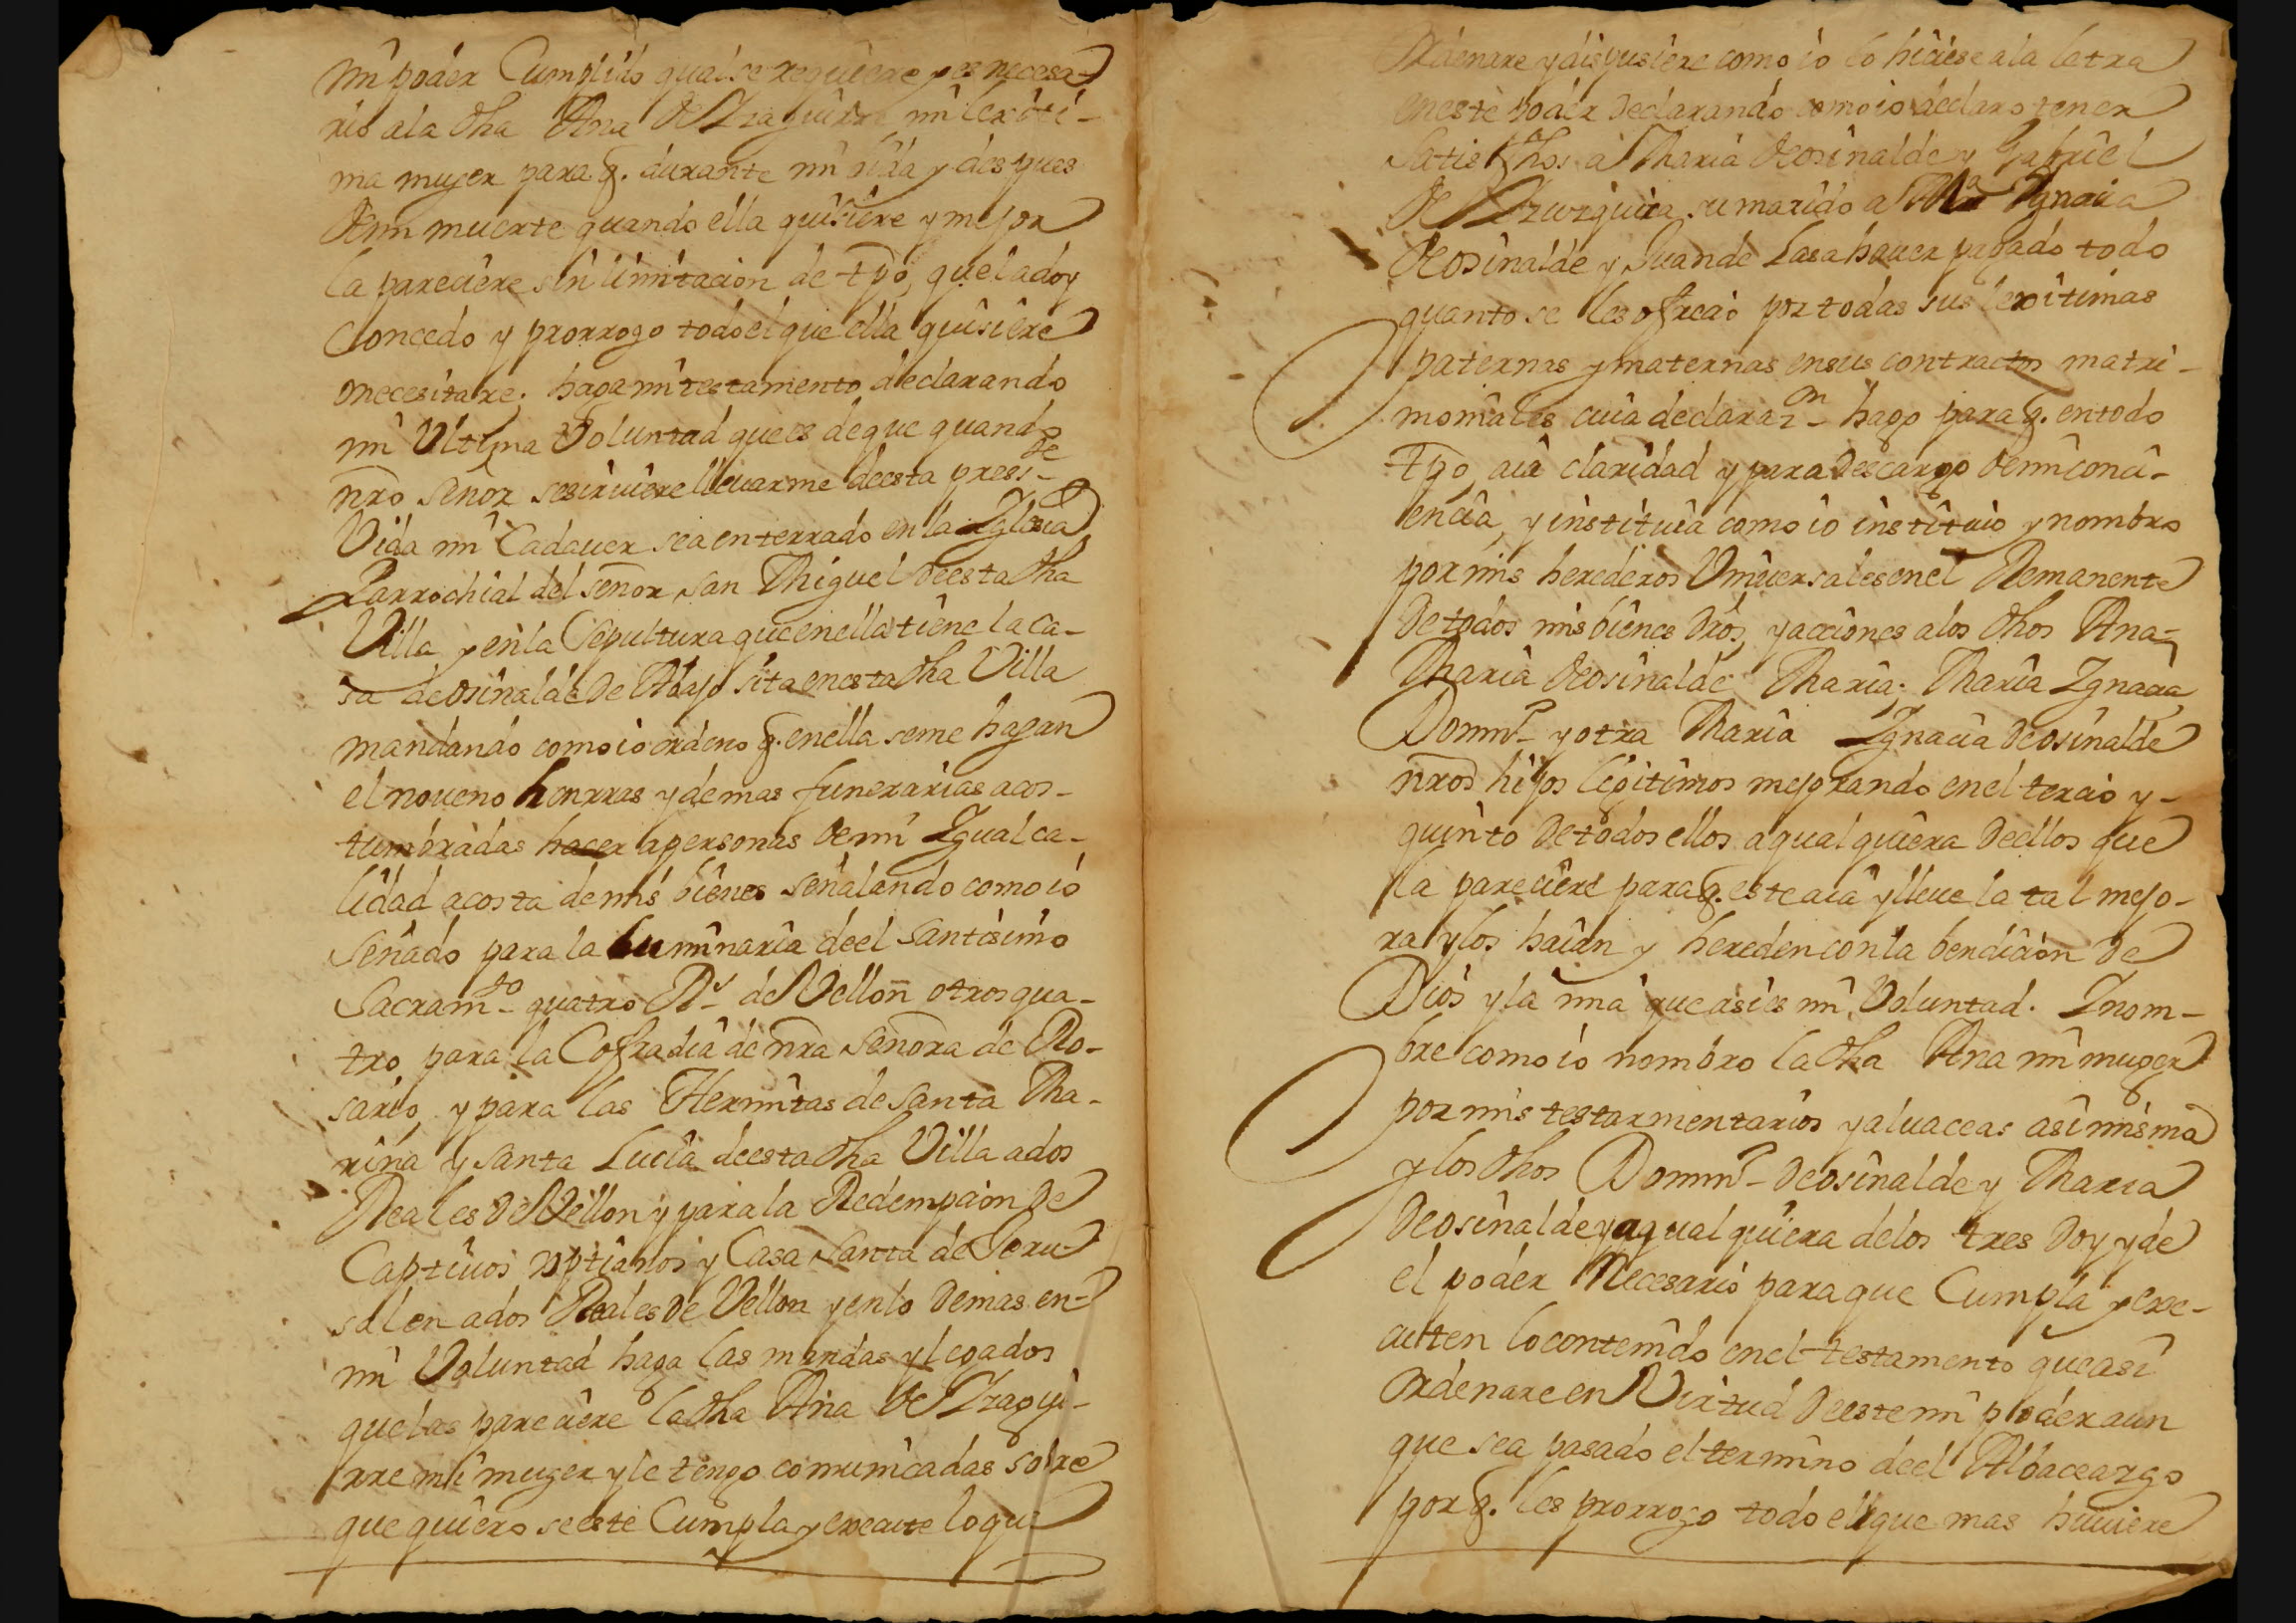 mi poder Cumplido qual se requiere y es necesa-
rio ala dha Ana de Yzaguirre mi lexiti-
ma muger para q. durante mi vida y despues
de mi muerte quando ella quisiere y mejor
la pareciere sin limitacion de tpo, que la doy
Concedo y prorrogo todo el que ella quisiere
o necesitare; haga mi testamento declarando
mi Ultima Voluntad que es de que quando
nro señor se sirviere llevarme de esta presste
Vida mi Cadauer sea enterrado en la Yglesia
Parrochial del señor san Miguel de esta dha
Villa y en la Sepultura que en ella tiene la ca-
sa de osinalde de Abajo sita en esta dha Villa
mandando como io ordeno q. en ella se me hagan
el noueno honrras y demas funerarias acos-
tumbradas hacer a personas de mi Ygual ca-
lidad a costa de mis bienes señalando como io
señado para la luminaria de el santisimo
Sacramto quatro Rs de Vellon otros qua-
tro para la Cofradia de nra señora de Ro-
sario, y para las Hermitas de santa Ma-
rina y santa Lucia de esta dha Villa a dos
Reales de Vellon y para la Redempcion de
Captiuos xptianos y Casa santa de Jeru-
salen a dos Reales de Vellon y en lo demas en
mi Voluntad haga las mandas y legados
que las pareciere la dha Ana de Yzagui-
rre mi muger y le tengo comunicadas sobre
que quiero se este Cumpla y execute lo que
Ordenare y dispusiere como io lo hiciese ala letra
en este poder declarando como io declaro tener
satisfhos a Maria de osinalde y Gabriel
de Yzuzquiza su marido a Ma Ygnacia
de osinalde y Juan de Lasa hauer pagado todo
quanto se les ofrecio por todas sus lexitimas
paternas y maternas en sus contractos matri-
moniales cuia declarazon hago para q. en todo
tpo aia claridad y para descargo de mi conci-
encia, y instituia como io instituio y nombro
por mis herederos Universales en el Remanente
de todos mis bienes dros, y acciones a los dhos Ana-
Maria de osinalde Maria; Maria Ygnacia
Domingo y otra Maria Ygnacia de osinalde
nros hijos legitimos mejorando en el tercio y-
quinto de todos ellos a qual quiera de ellos que
la pareciere para q. este aia y lleue la tal mejo-
ra y los haian y hereden con la bendicion de
Dios y la mia que asi es mi Voluntad. Y nom-
bre como io nombro la dha Ana mi muger
por mis testarmentarios y aluaceas asi misma
y los dhos Domingo de osinalde y Maria
de osinalde y a qual quiera de los tres doy y de
el poder Necesario para que Cumpla y exe-
cuten lo contenido en el testamento que asi
Ordenare en Virtud de este mi poder aun
que sea pasado el termino de el Albaceazgo
por q. les prorrogo todo el que mas huuiere